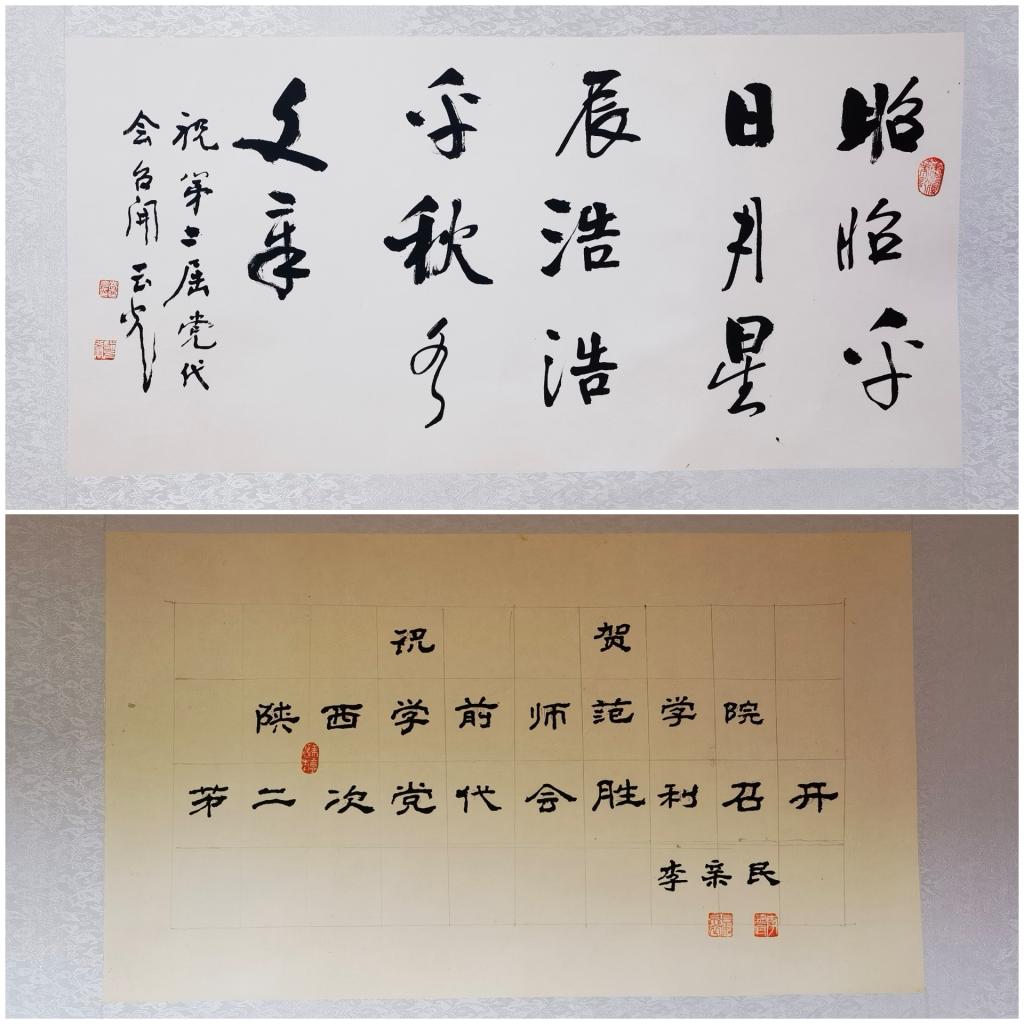 昭昭乎
日月星
辰浩浩
乎秋水
文章
祝第二届党代
会召开
祝贺
陕西学前师范学院
第二次党代会胜利召开
李亲民